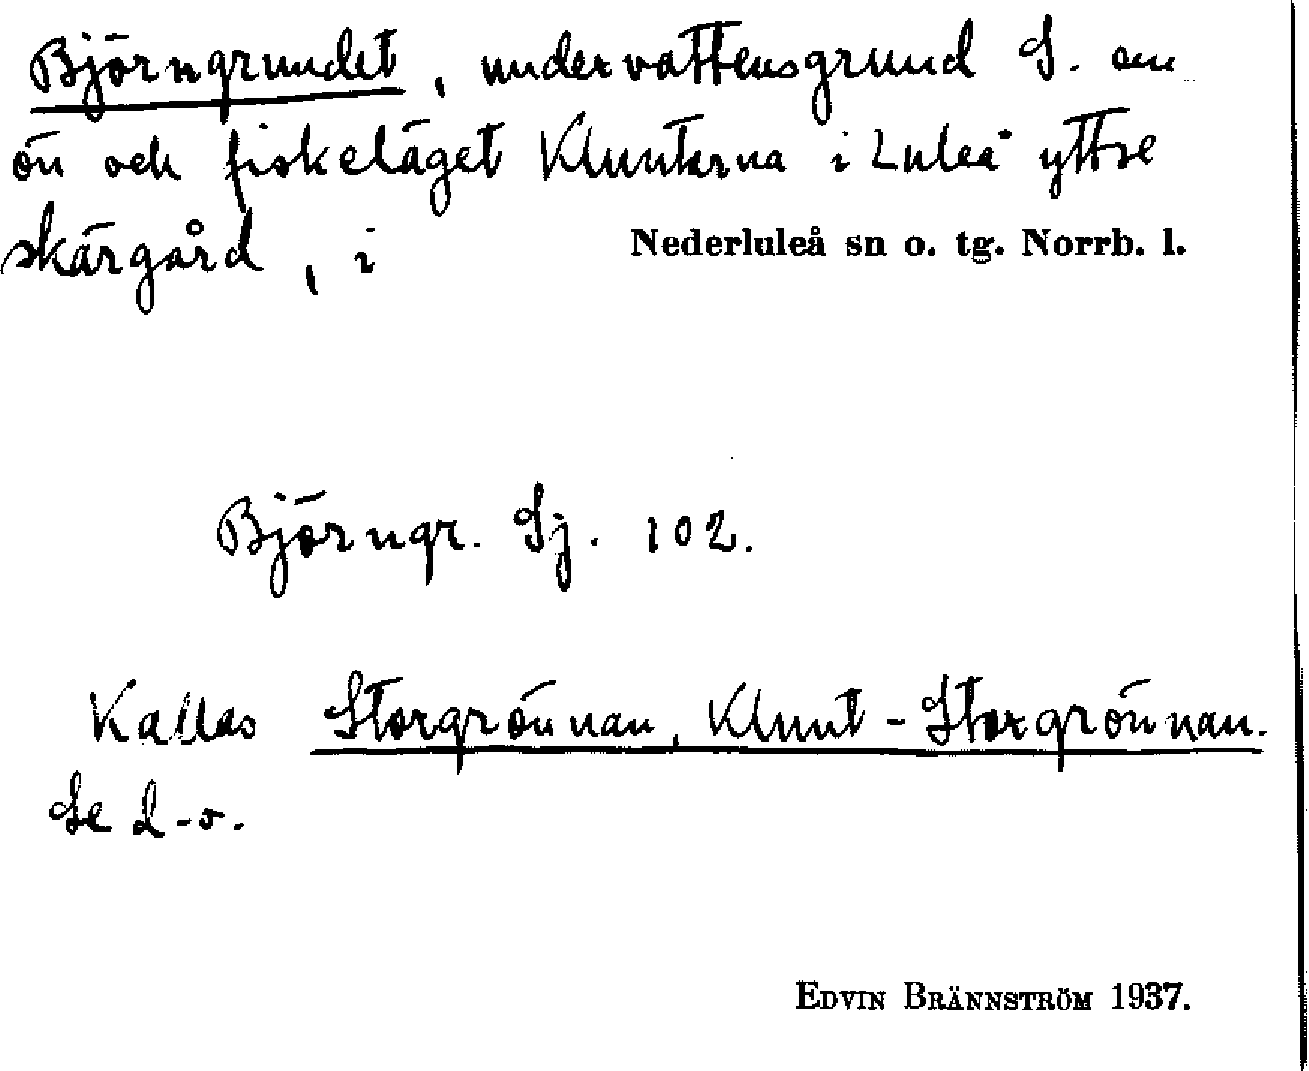 Björngrundet, undervattensgrund S. om
ön och fiskeläget Kluntarna i Luleå yttre
skärgård, i Nederluleå sn o. tg. Norrb. l.
Björngr. Sj. 102.
Kallas Storgrönnan, Klunt-Storgrönnan.
Se d-o.
EDVIN BRÄNNSTRÖM 1937.